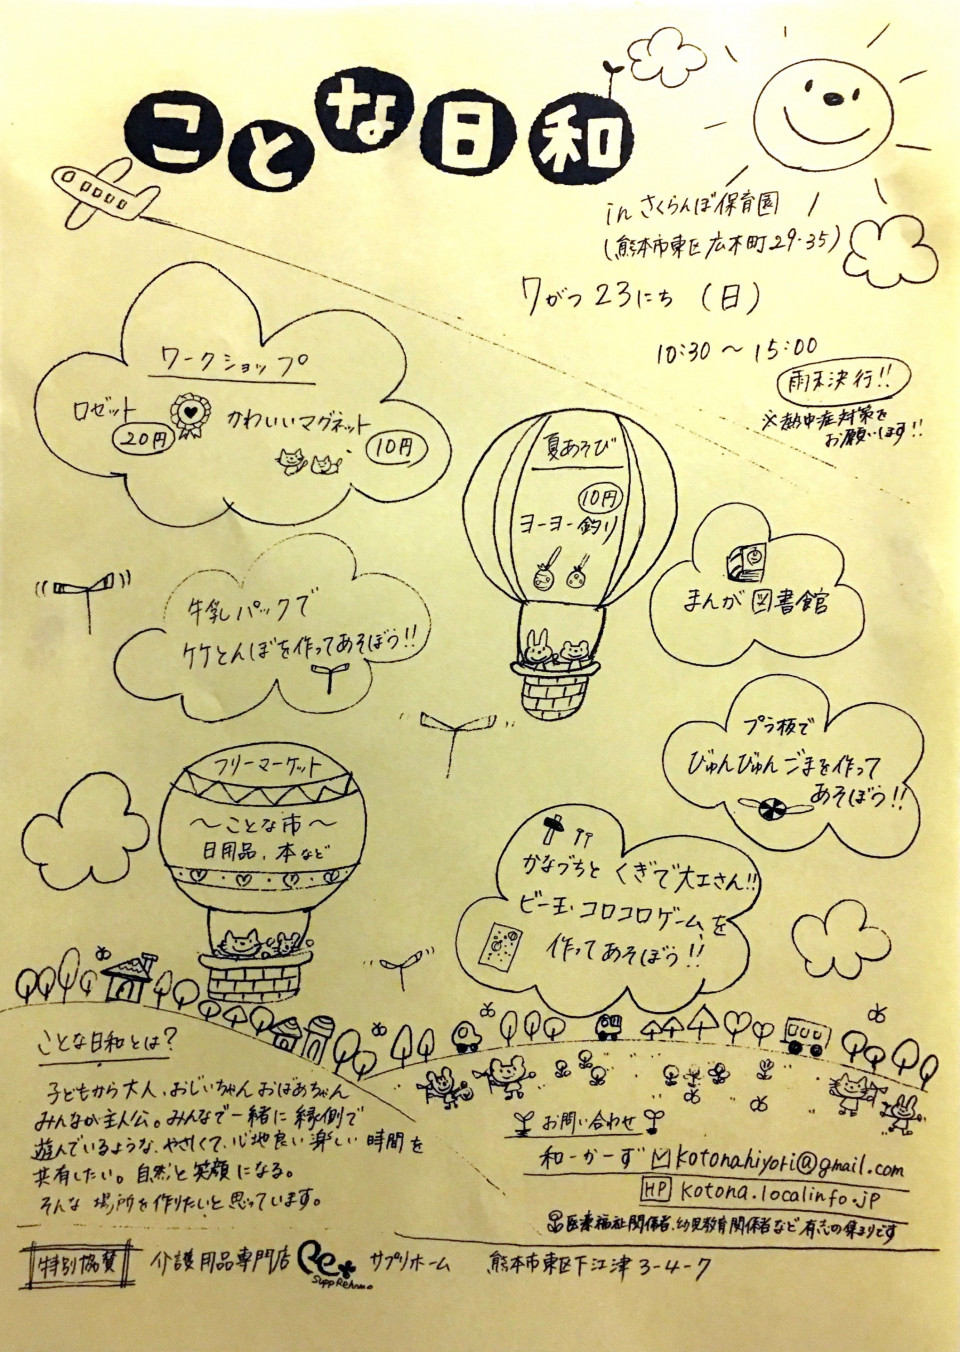 ことな日和
in さくらんぼ保育園
(熊本市東区広木町29-35)
7がつ 23にち (日)
10:30 ～ 15:00
雨天決行!!
※熱中症対策を
お願いします!!
ワークショップ
ロゼット
20円
かわいいマグネット
10円
夏あそび
10円
ヨーヨー釣り
まんが図書館
牛乳パックで
ケケとんぼを作ってあそぼう!!
プラ板で
びゅんびゅんごまを作って
あそぼう!!
フリーマーケット
～ことな市～
日用品、本など
かなづちと くぎで大工さん!!
ビー玉コロコロゲームを
作ってあそぼう!!
ことな日和とは?
子どもから大人、おじいちゃん おばあちゃん
みんなが主人公。みんなで一緒に縁側で
遊んでいるような、やさしくて、心地良い楽しい時間を
共有したい。自然と笑顔になる。
そんな場所を作りたいと思っています。
お問い合わせ
和ーかーず kotonahiyori@gmail.com
HP kotona.localinfo.jp
医療福祉関係者、幼児教育関係者など有志の集まりです
特別協賛 介護用品専門店 Re+ サプリホーム 熊本市東区下江津3-4-7